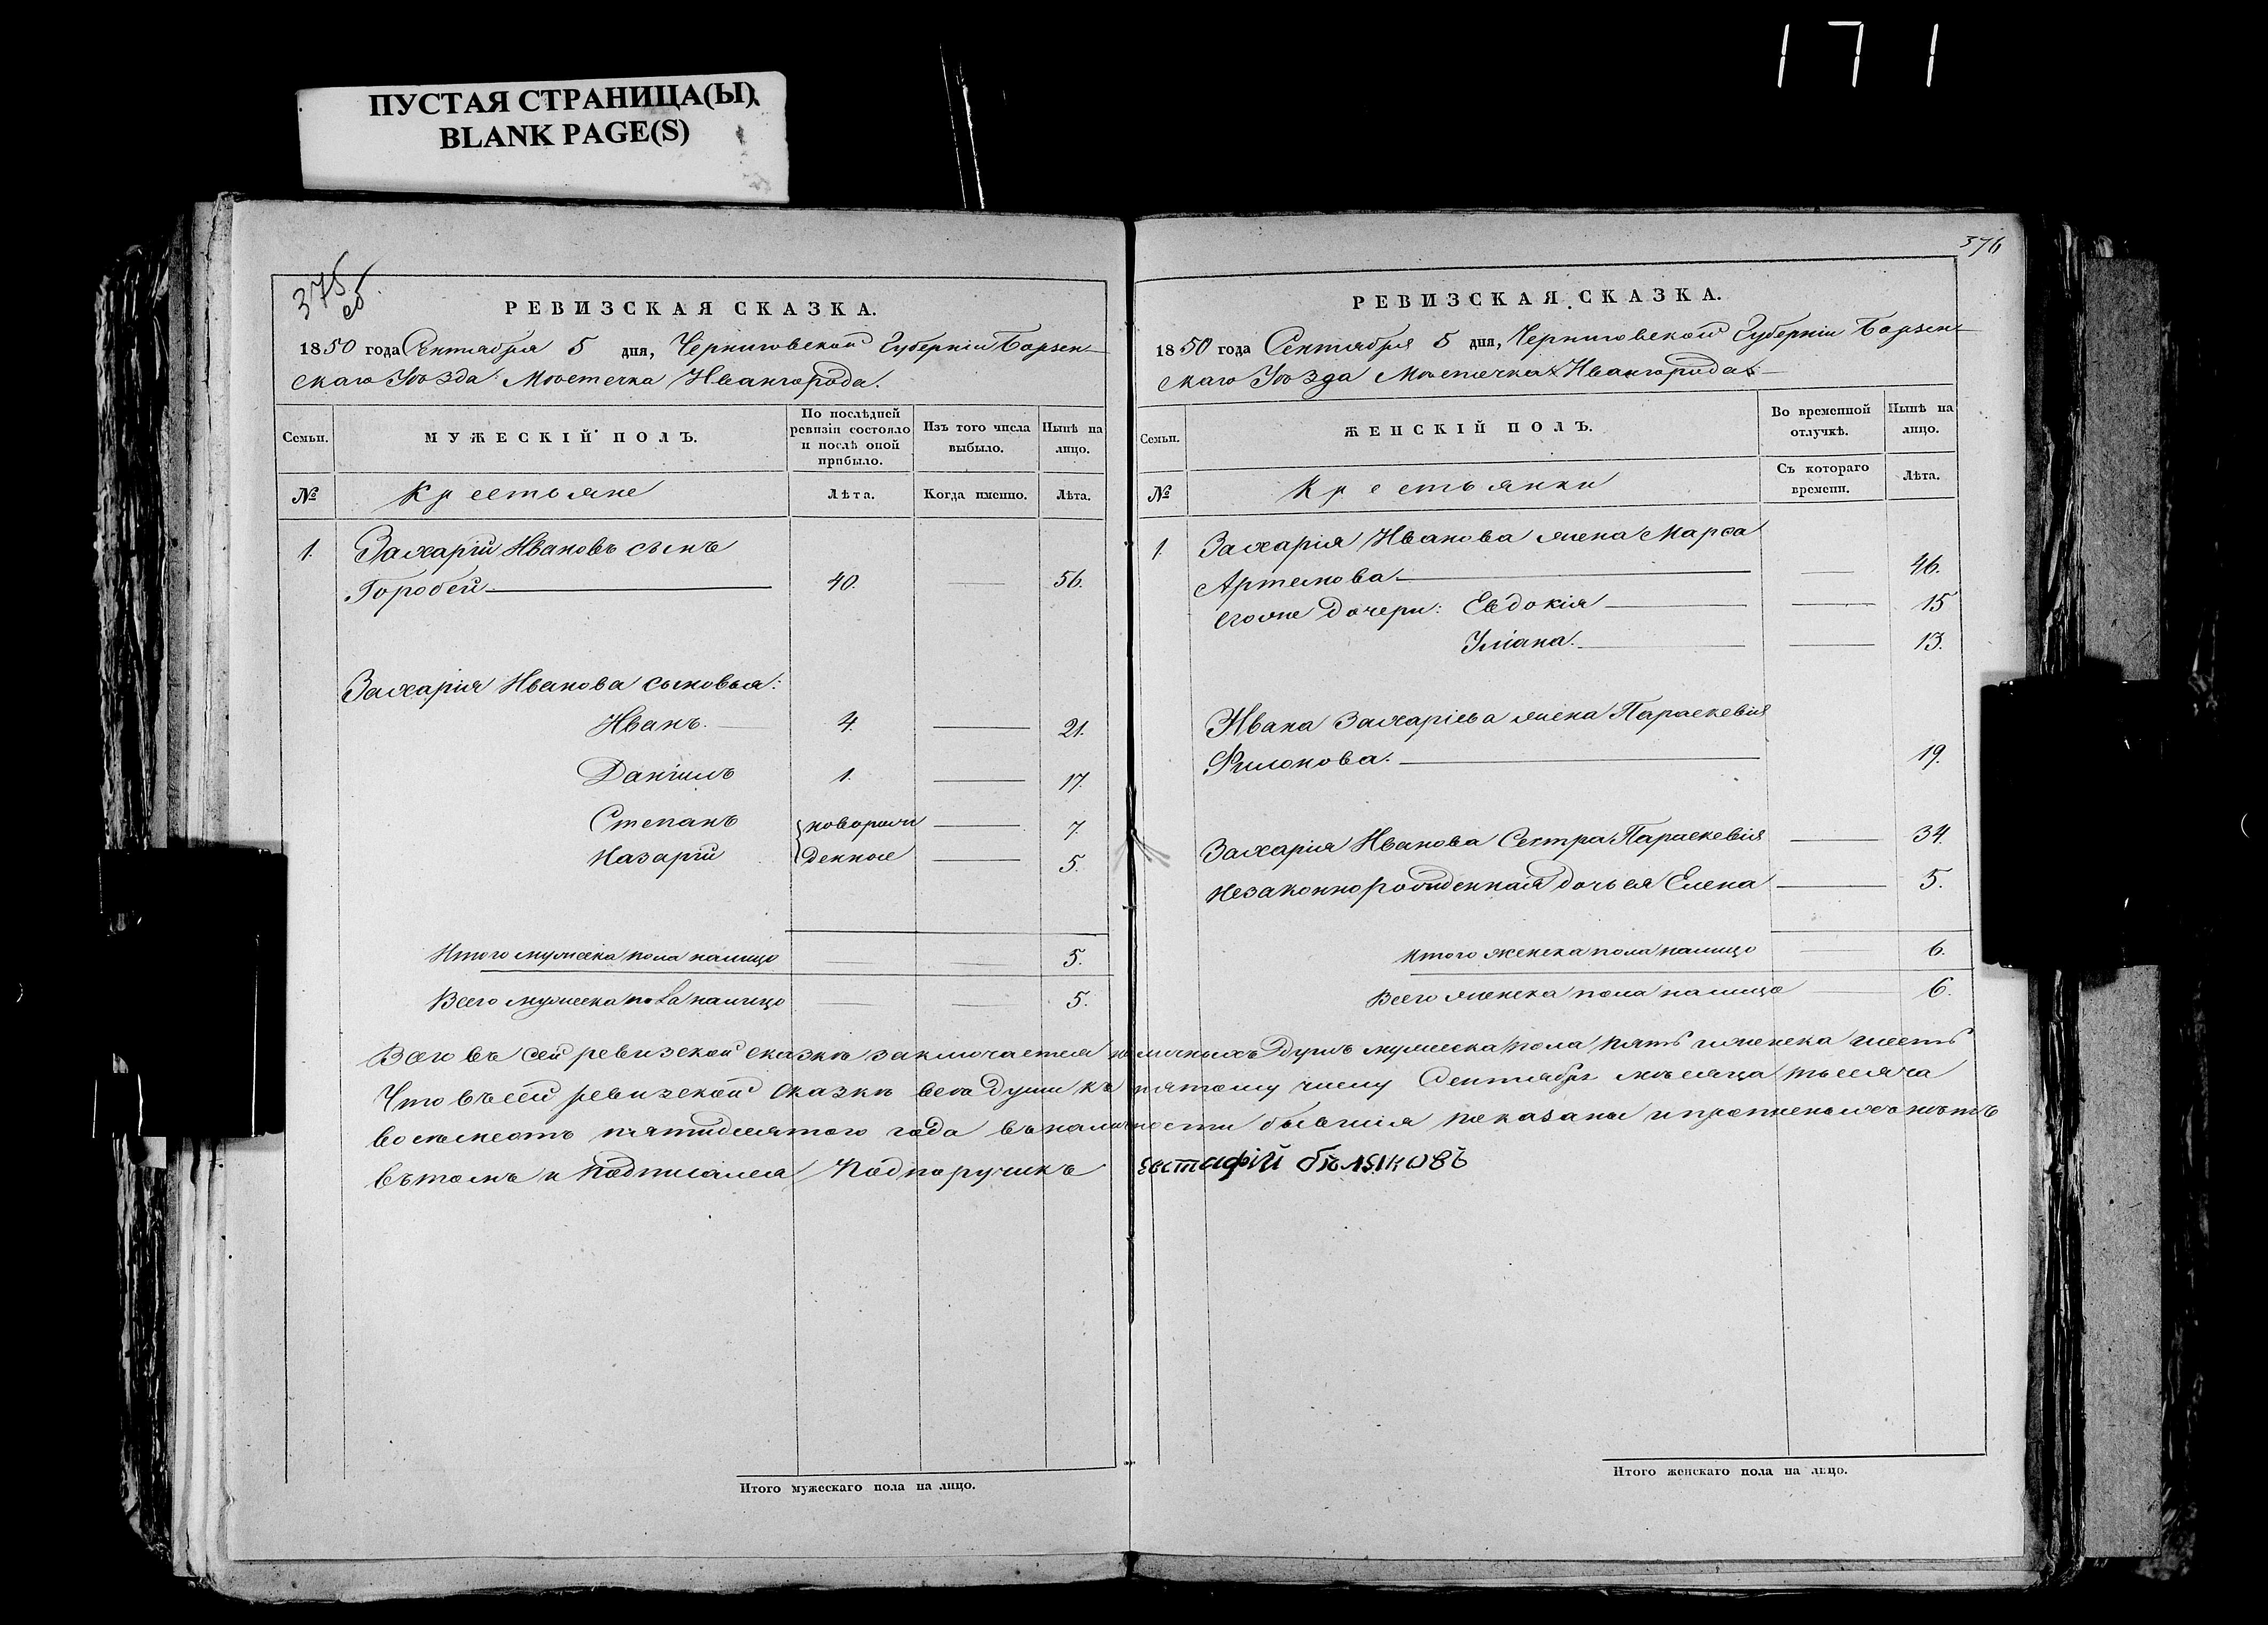 171
ПУСТАЯ СТРАНИЦА(Ы)
BLANK PAGE(S)
375
об.
РЕВИЗСКАЯ СКАЗКА.
1850 года Сентября 5 дня, Черниговской Губернiи Борзен-
скаго Уѣзда Мѣстечка Ивангорода.
Семьи.
МУЖЕСКІЙ ПОЛЪ.
По послѣдней ревизіи состояло и послѣ оной прибыло.
Изъ того числа выбыло.
Нынѣ на лицо.
№
Крестьяне
Лѣта.
Когда именно.
Лѣта.
1. Захарій Ивановъ сынъ
Горобей 40. 56.
Захарія Иванова сыновья:
Иванъ. 4. 21.
Даніилъ 1. 17.
Степанъ новорож 7.
Назарій денные 5.
Итого мужеска пола налицо 5.
Всего мужеска пола налицо 5.
376
РЕВИЗСКАЯ СКАЗКА.
1850 года Сентября 5 дня, Черниговской Губерніи Борзен-
скаго Уѣзда Мѣстечка Ивангорода
Семьи.
ЖЕНСКІЙ ПОЛЪ.
Во временной отлучкѣ.
Нынѣ на лицо.
№
Крестьянки
Съ котораго времени.
Лѣта.
1. Захарія Иванова жена Марѳа
Артемова 46.
егоже дочери: Евдокія 15
Уліана. 13.
Ивана Захаріева жена Параскевія
Филонова. 19.
Захарія Иванова Сестра Параскевія 34.
Незаконнорожденная дочь ея Елена 5.
Итого женска пола налицо 6.
Всего женска пола налицо 6.
Всего въ сей ревизской сказкѣ заключается наличныхъ душъ мужеска пола пять и женска шесть
Что въ сей ревизской сказкѣ все души къ пятому числу Сентября мѣсяца тысяча
восемьсотъ пятидесятого года въ наличности бывшія показаны и прописныхъ нѣтъ
въ томъ и подписался Подпоручикъ Евстафій Бѣликовъ
Итого мужескаго пола на лицо.
Итого женскаго пола на лицо.